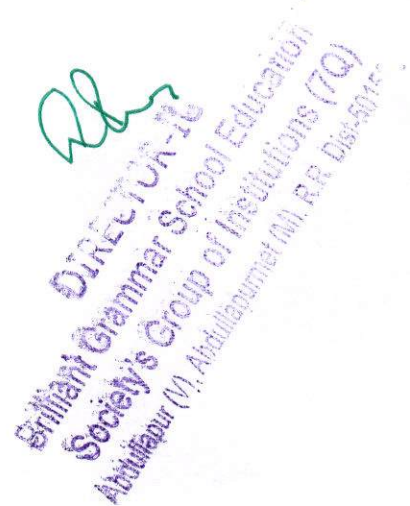 DIRECTOR-IG
Brilliant Grammar School Education
Society's Group of Institutions (7Q)
Abdullapur (V), Abdullapurmet (M), R.R. Dist-50150